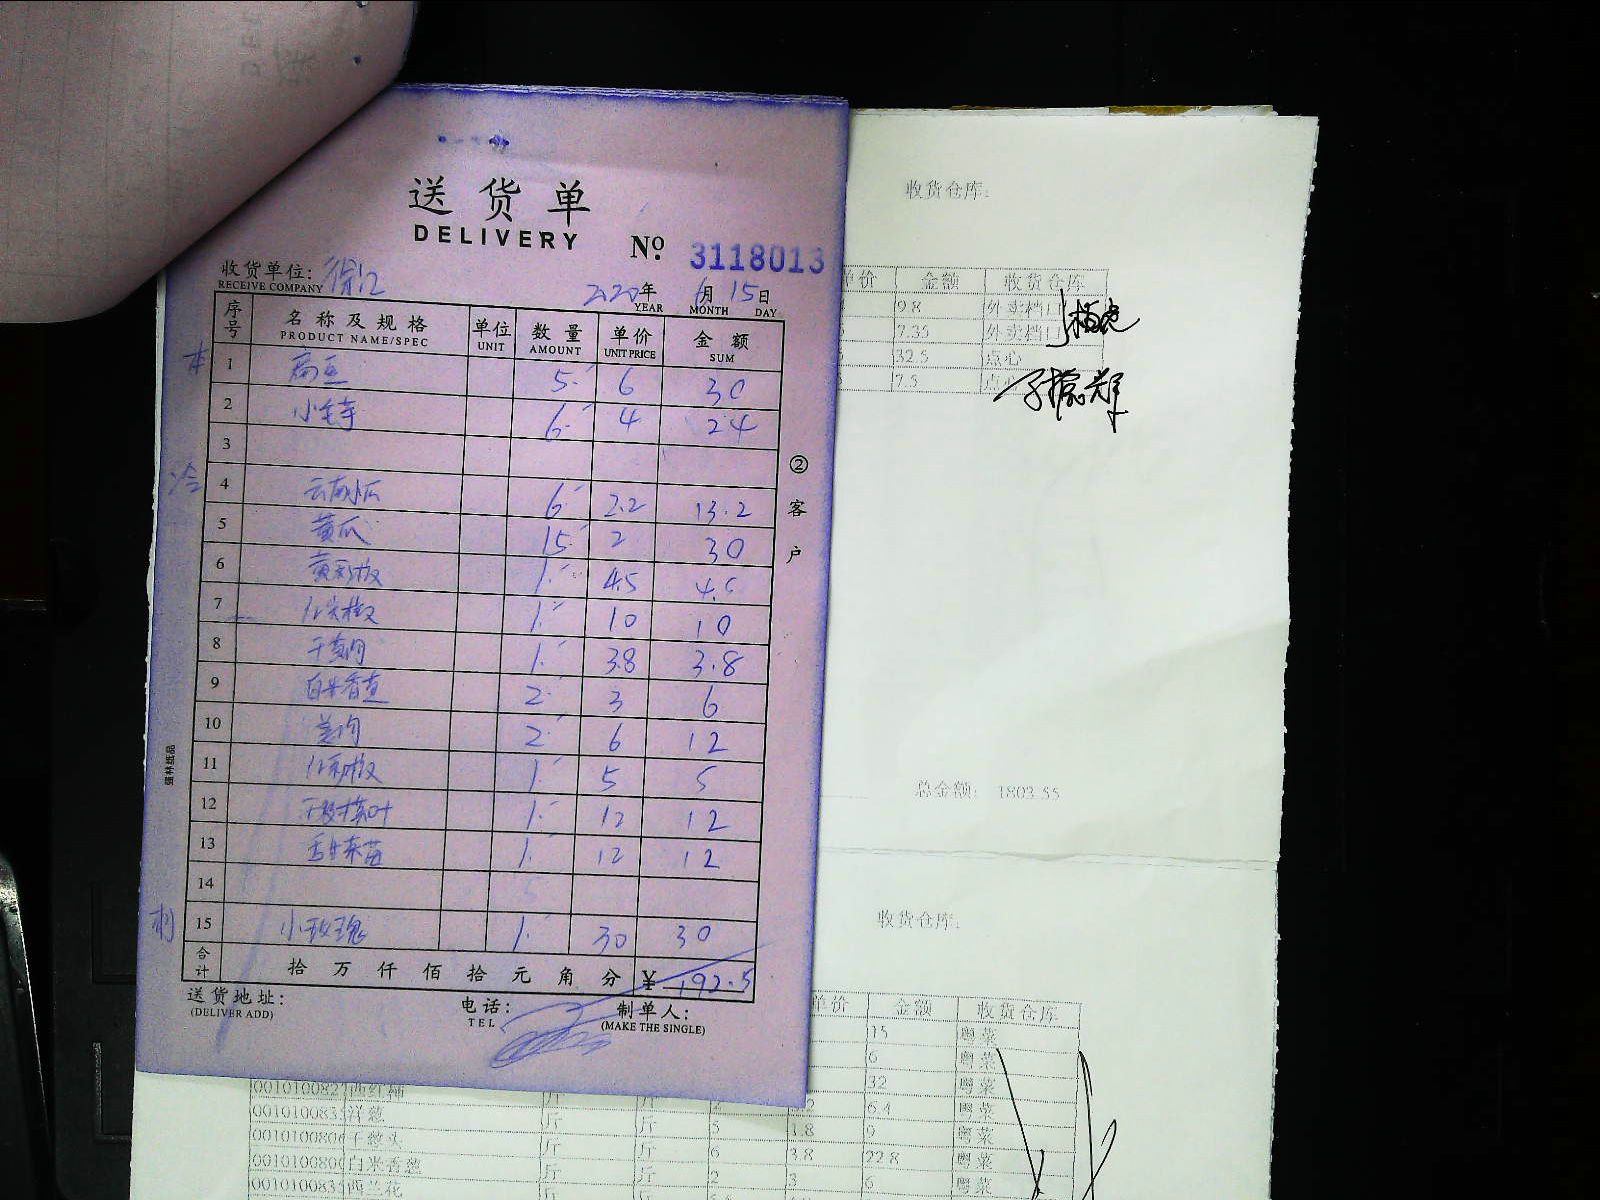 送货单
DELIVERY
№ 3118013
收货单位: 徐汇
RECEIVE COMPANY
2020年 6月 15日
YEAR MONTH DAY
序号 名称及规格 单位 数量 单价 金额
PRODUCT NAME/SPEC UNIT AMOUNT UNIT PRICE SUM
本 1 扁豆 5 6 30
2 6 4 24
3
冷 4 云南小瓜 6 2.2 13.2
5 黄瓜 15 2 30
6 黄彩椒 1 4.5 4.5
7 红尖椒 1 10 10
8 干葱肉 1 3.8 3.8
9 白米香葱 2 3 6
10 姜肉 2 6 12
11 红彩椒 1 5 5
12 1 12 12
13 1 12 12
14
15 小玫瑰 1 30 30
合计 拾 万 仟 佰 拾 元 角 分 ¥ 192.5
送货地址: 电话: 制单人:
(DELIVER ADD) TEL (MAKE THE SINGLE)
②客户
收货仓库:
单价 金额 收货仓库
9.8 外卖档口
7.35 外卖档口
32.5 点心
7.5 点心
总金额: 1803.55
收货仓库:
单价 金额 收货仓库
15 粤菜
6 粤菜
32 粤菜
西红柿 斤 斤 2 3.2 6.4 粤菜
洋葱 斤 斤 5 1.8 9 粤菜
干葱头 斤 斤 6 3.8 22.8 粤菜
白米香葱 斤 斤 2 3 6 粤菜
西兰花 斤